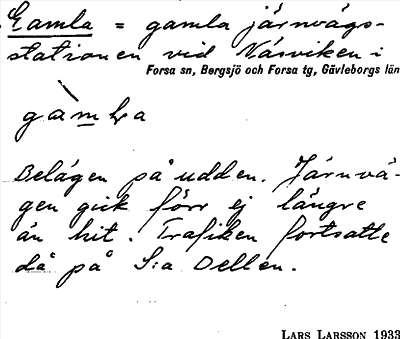 Gamla = gamla järnvägs-
stationen vid Näsviken i
Forsa sn, Bergsjö och Forsa tg, Gävleborgs län
Belägen på udden. Järnvä-
gen gick förr ej längre
än hit. Trafiken fortsatte
då på S:a Dellen.
LARS LARSSON 1933